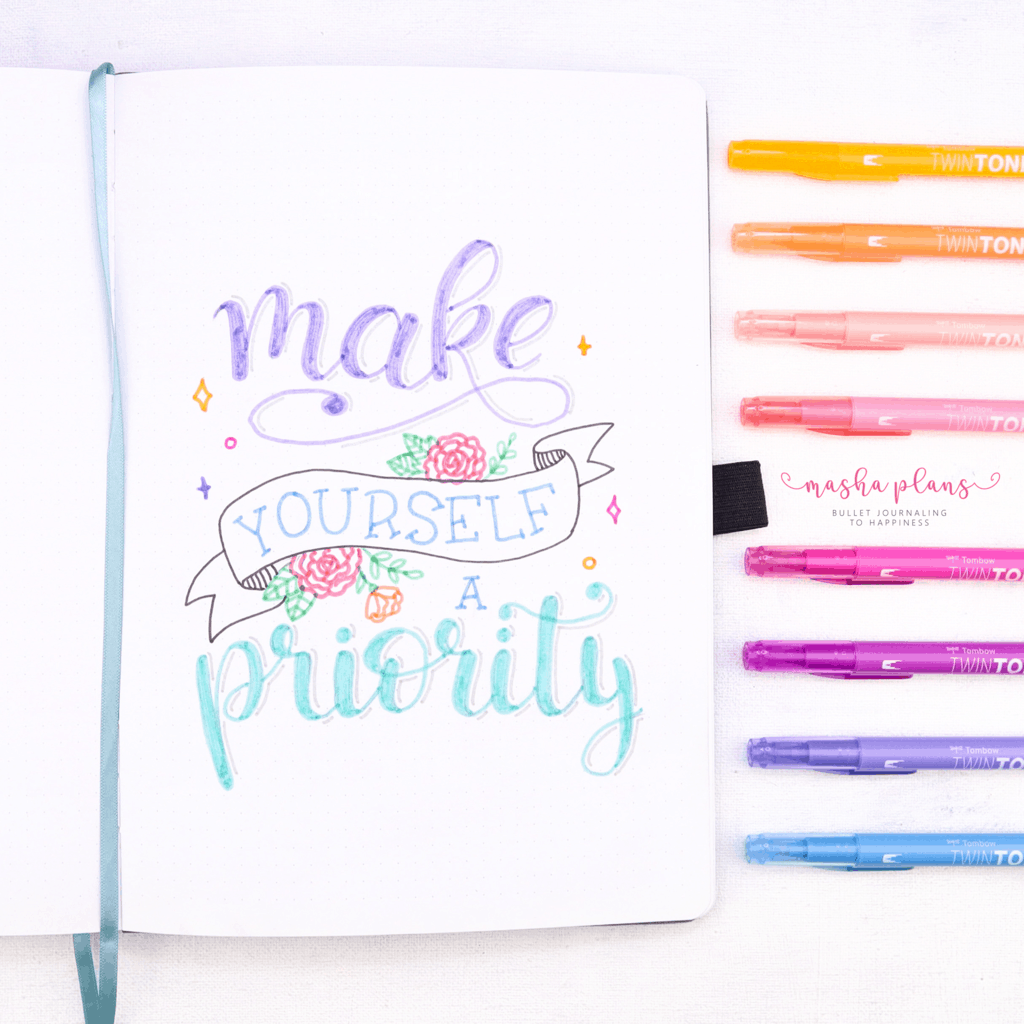 make
YOURSELF
A
priority
TWINTONE
Tombow
TWINTONE
TWINTONE
Tombow
TWINTONE
masha plans
BULLET JOURNALING
TO HAPPINESS
Tombow
TWINTONE
Tombow
TWINTONE
Tombow
TWINTONE
Tombow
TWINTONE